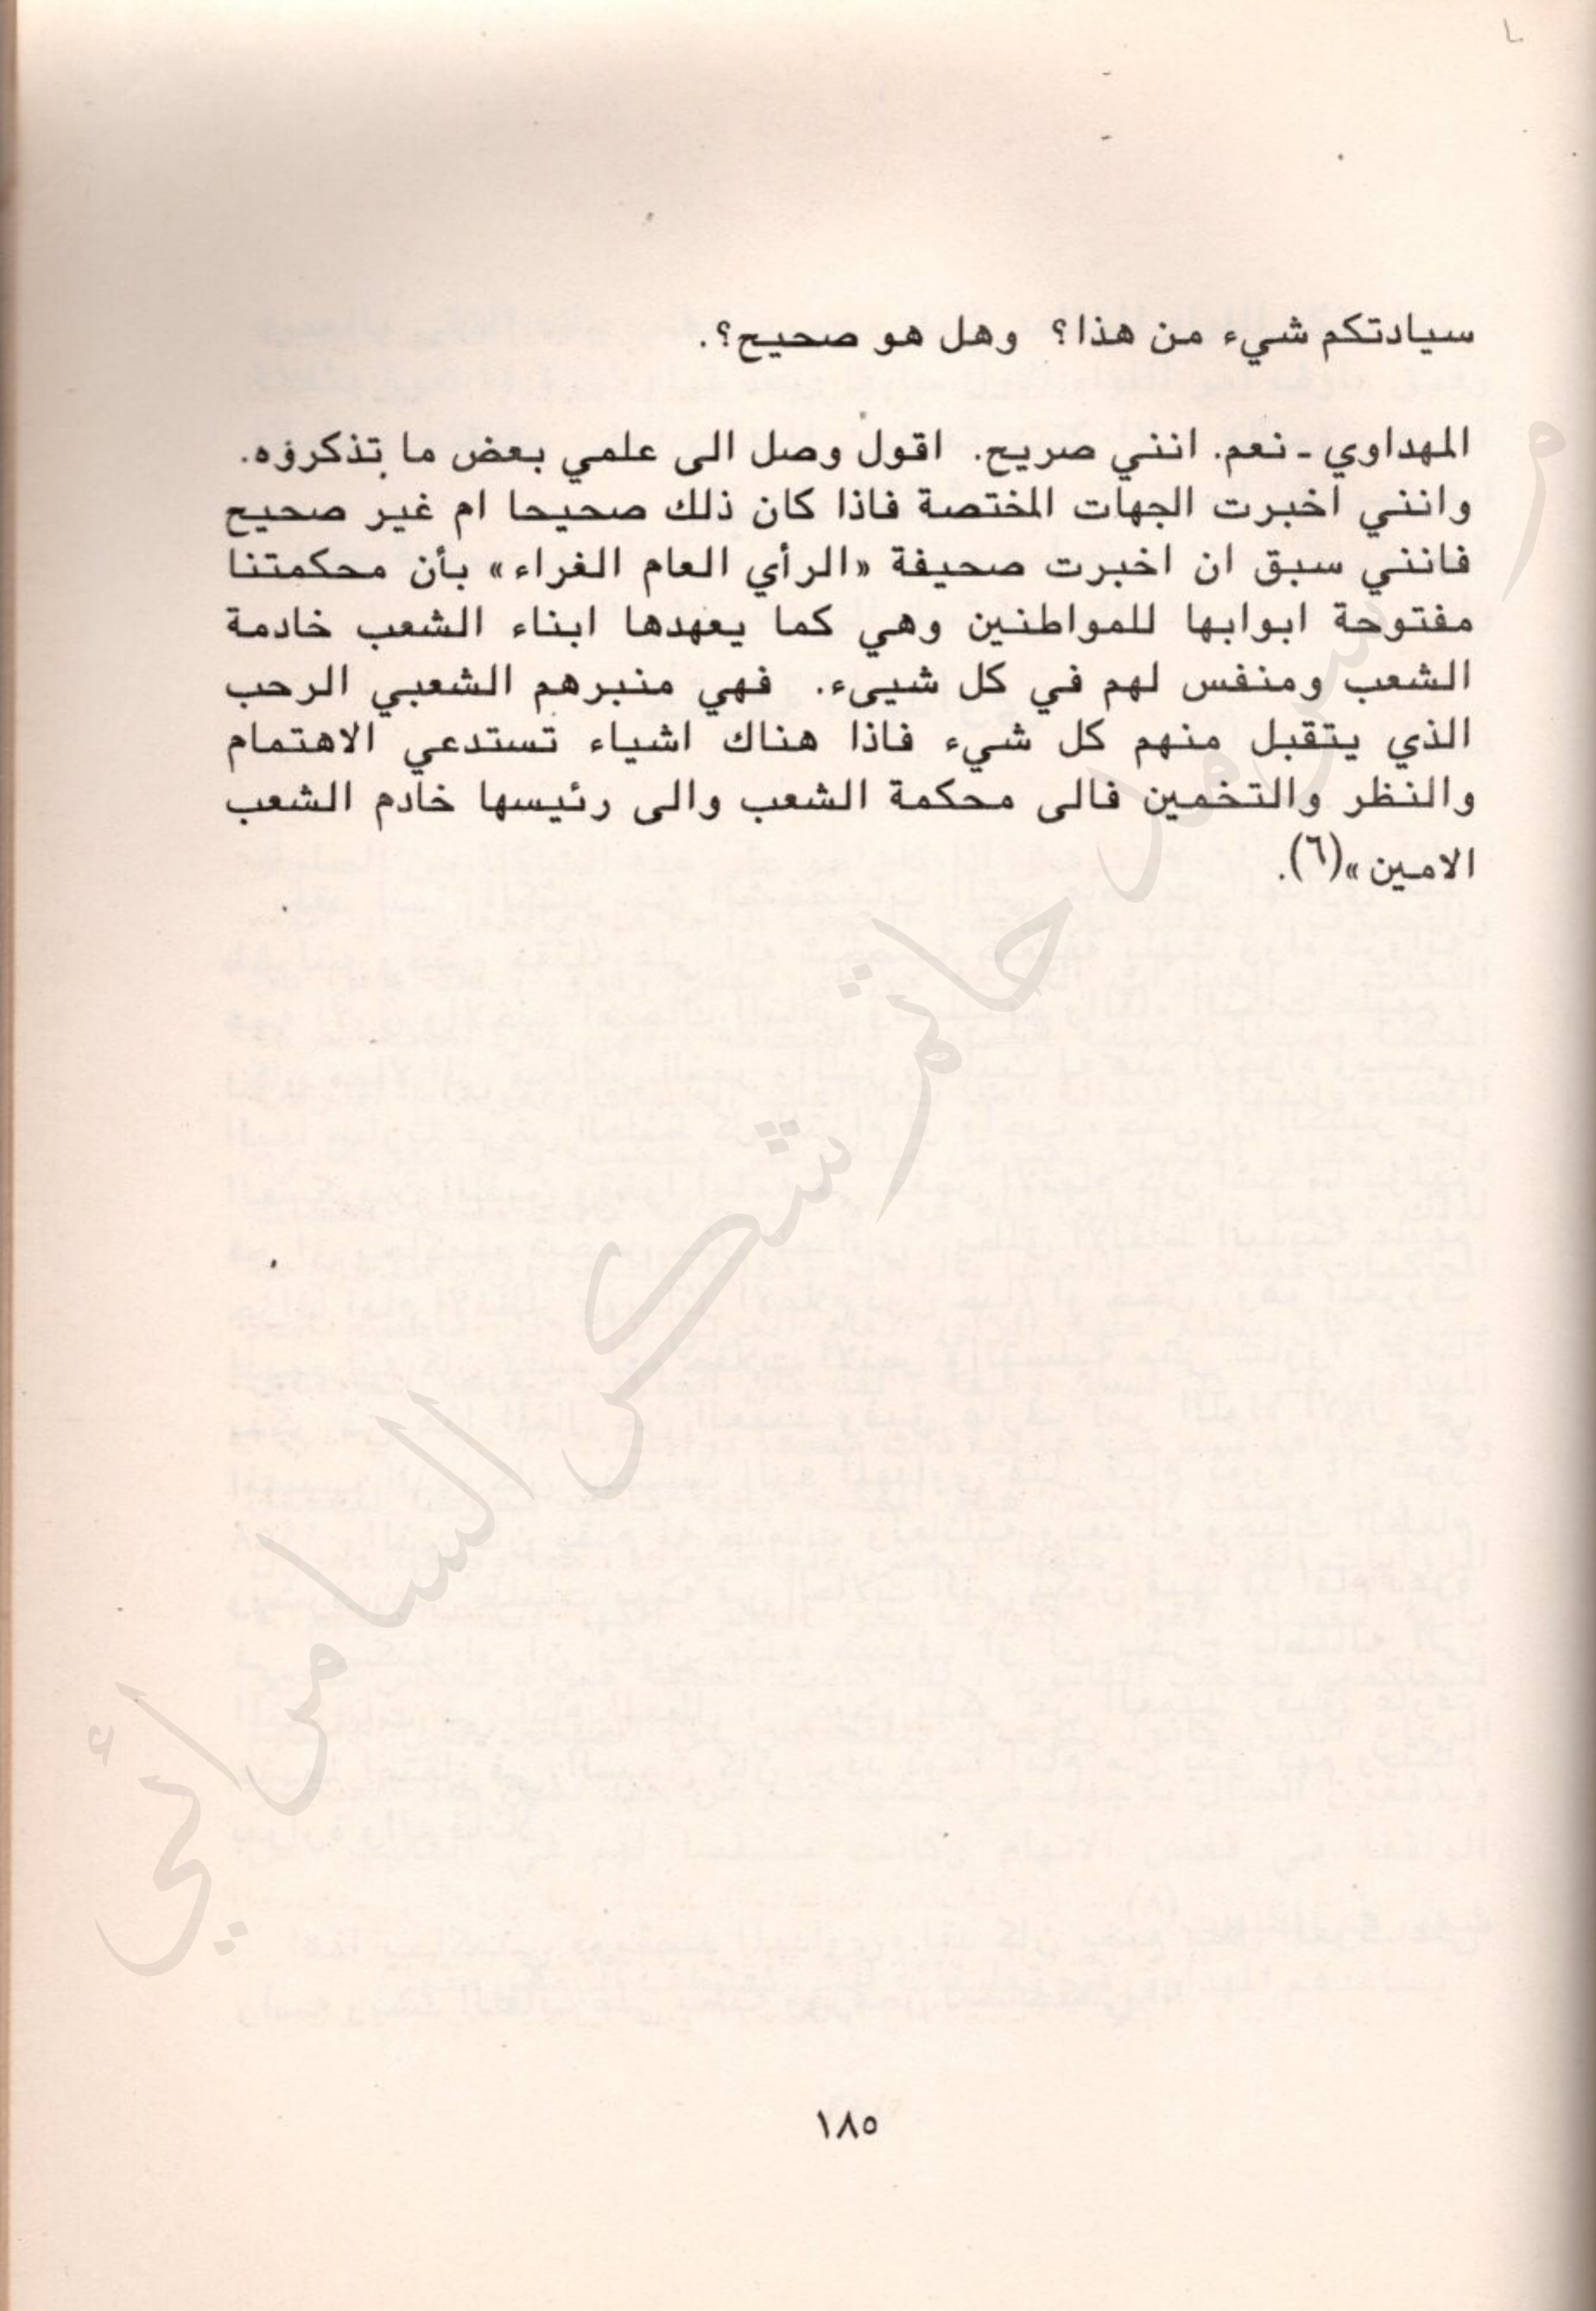 سيادتكم شيء من هذا؟ وهل هو صحيح؟.
المهداوي ـ نعم. انني صريح. اقول وصل الى علمي بعض ما تذكروه.
وانني اخبرت الجهات المختصة فاذا كان ذلك صحيحا ام غير صحيح
فانني سبق ان اخبرت صحيفة «الرأي العام الغراء» بأن محكمتنا
مفتوحة ابوابها للمواطنين وهي كما يعهدها ابناء الشعب خادمة
الشعب ومنفس لهم في كل شيىء. فهي منبرهم الشعبي الرحب
الذي يتقبل منهم كل شيء فاذا هناك اشياء تستدعي الاهتمام
والنظر والتخمين فالى محكمة الشعب والى رئيسها خادم الشعب
الامين»(٦).
م. سرمد حاتم شكر السامرائي
١٨٥